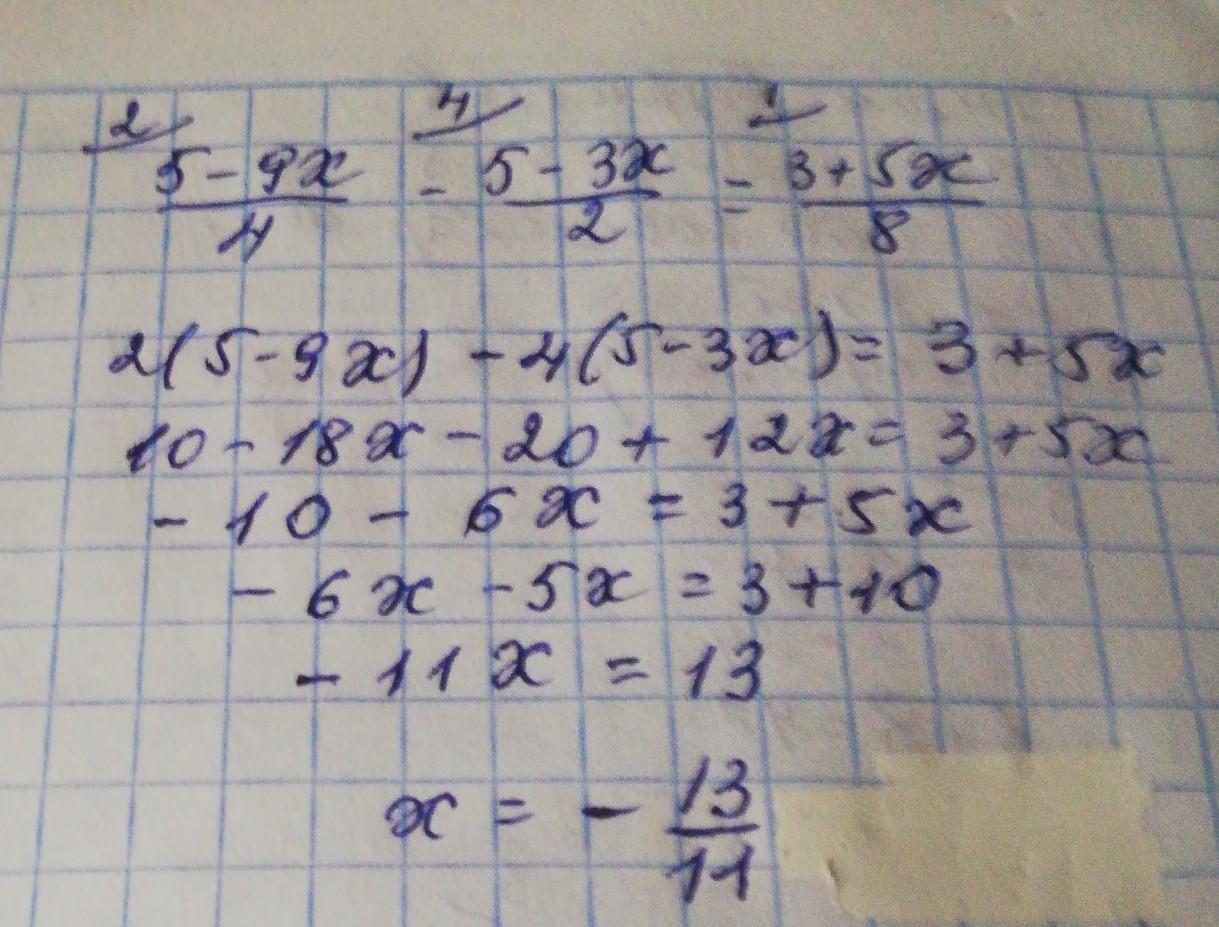 2 4 1
5-9x/4 - 5-3x/2 = 3+5x/8
2(5-9x) - 4(5-3x) = 3+5x
10-18x-20+12x=3+5x
-10-6x=3+5x
-6x-5x=3+10
-11x=13
x=-13/11